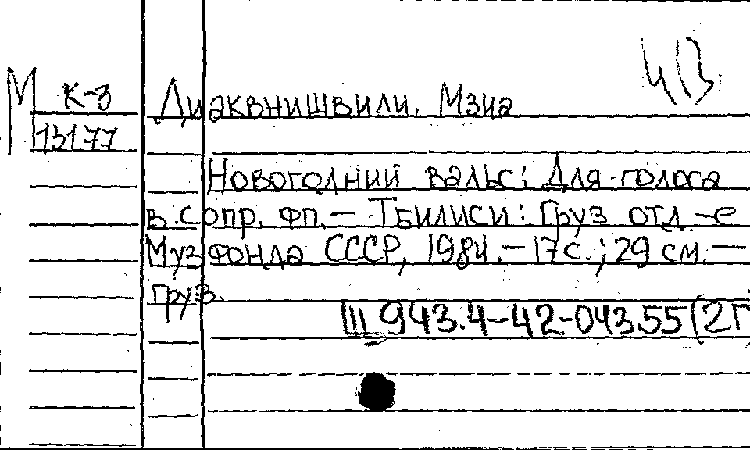 ЧЗ
М К-3 Диаквнишвили. Мзиа
13177
Новогодний вальс: Для голоса
в сопр. фп. – Тбилиси: Груз отд-е
Музфонда СССР, 1984. – 17 с.; 29 см. –
груз.
III 943.4-42-043.55(2Г